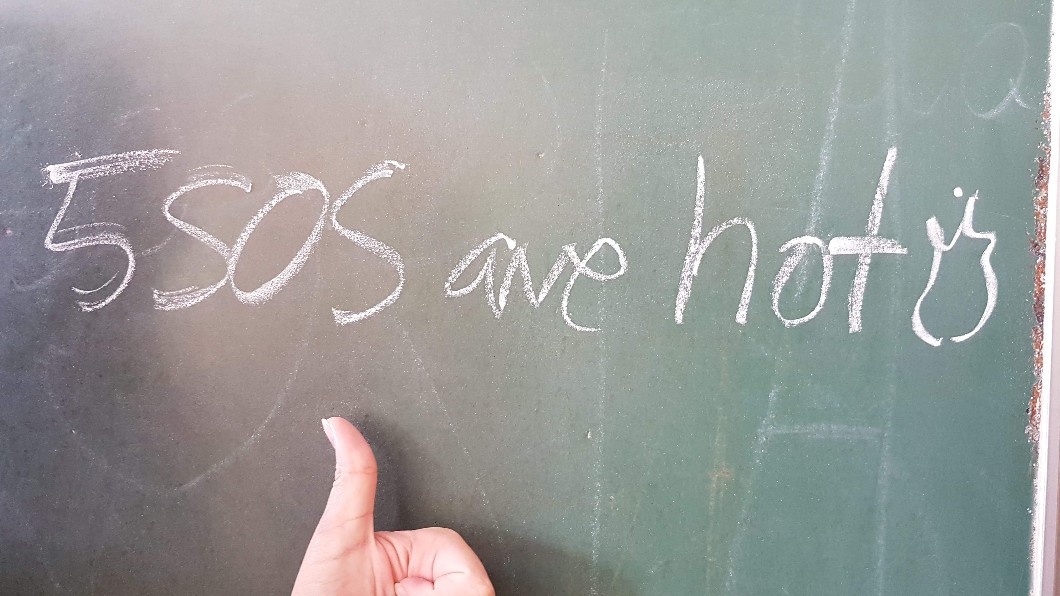 5SOS are hot